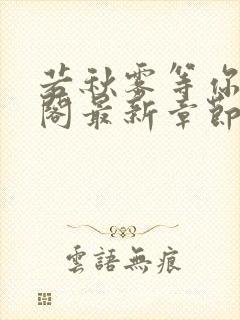 若秋雾等你
閣最新章節
雲語無痕